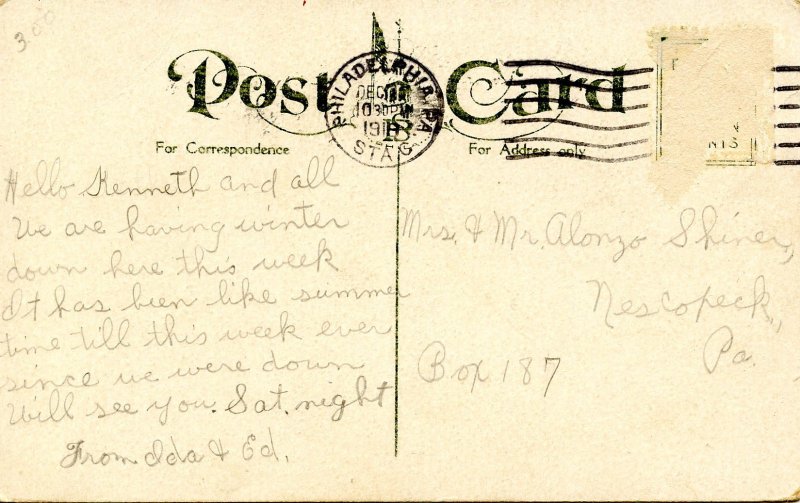 3.00
Post Card
PHILADELPHIA, PA.
DEC
1030PM
191
STA G
For Correspondence
For Address only
N13
Hello Kenneth and all
We are having winter
down here this week
It has been like summer
time till this week ever
since we were down
Will see you. Sat. night
From Ida & Ed.
Mrs. & Mr. Alonzo Shiner,
Nescopeck,
Pa.
Box 187